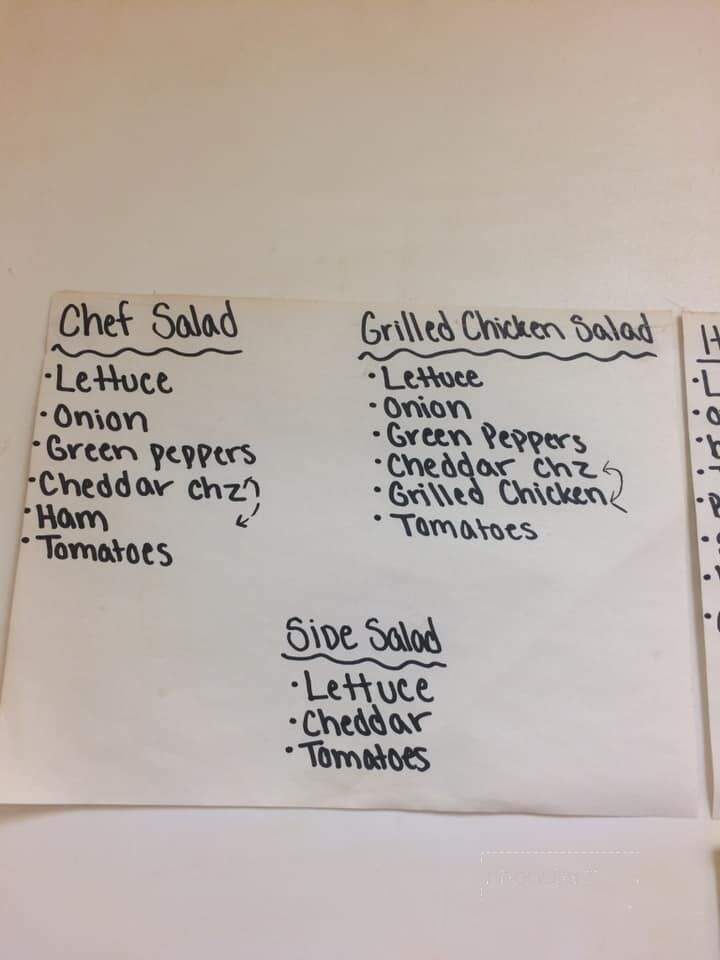 Chef Salad
· Lettuce
· Onion
· Green peppers
· Cheddar chz
· Ham
· Tomatoes
Grilled Chicken Salad
· Lettuce
· Onion
· Green Peppers
· Cheddar chz
· Grilled Chicken
· Tomatoes
Side Salad
· Lettuce
· Cheddar
· Tomatoes